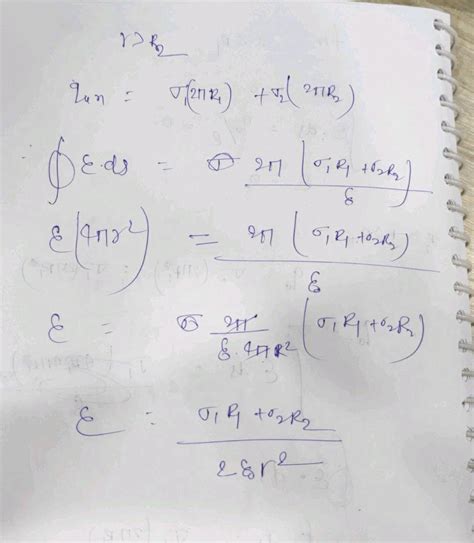 r>R₂
qᵢₙ = σ₁(2πR₁) + σ₂(2πR₂)
∮ε·ds = 2π(σ₁R₁+σ₂R₂)/ε
ε(4πr²) = 2π(σ₁R₁+σ₂R₂)/ε
ε = 2π/ε·4πR² (σ₁R₁+σ₂R₂)
ε = σ₁R₁+σ₂R₂/2εr²